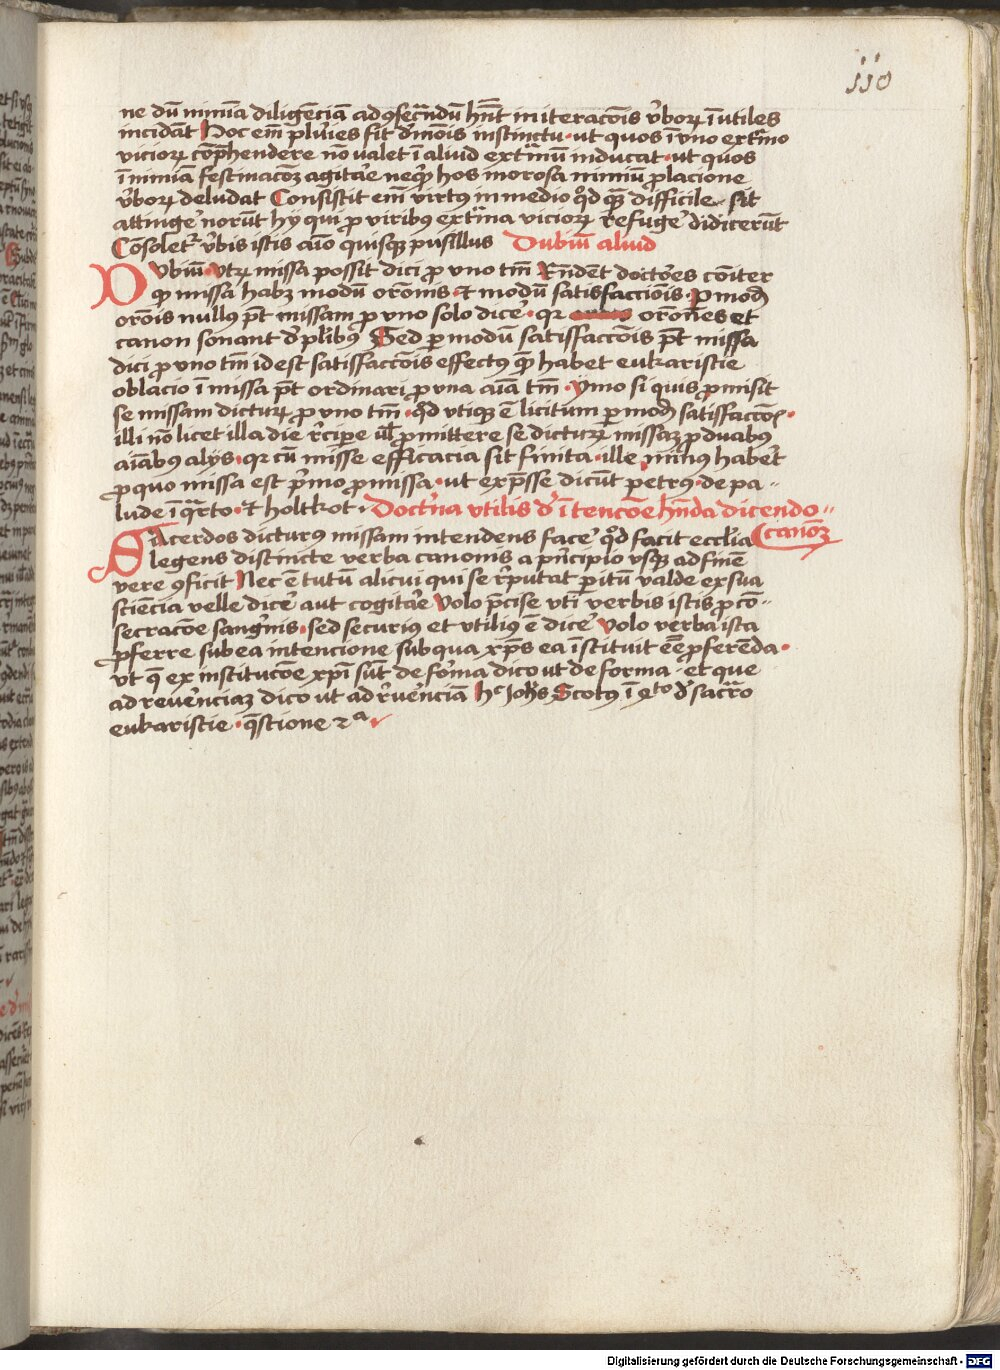 110
ne dū nimiā diligēciā ad ꝯsecrādū hn̄t in iteracōīs v̓borꝝ īutiles
incidāt Hoc em̄ pluries fit dmōis instinctu · ut quos ī vno extᵉmo
viciorꝝ cōp̄hendere nō valet ī aliud extᵉmū inducat · ut quos
ī nimiā festinacōꝫ agitare neqꝫ hos morosa nimiū ꝓlacione
v̓borꝝ deludat Consistit em̄ virtus in medio qd̓ qꝫ difficile sit
attinge̓ norūt hy qui ꝓ viribus extᵉma viciorꝝ refuge̓ didicerūt
Consolet᷑ v̓bis istis aīo quisqꝫ pusillus Dubiū aliud
Dubiū · Utrꝫ missa possit dici ꝓ vno tm̄ Rn̄dēt doctores cōiter
ꝙ missa habꝫ modū orōnis · et modū satisfacciōis · ꝑ modū
orōīs nullꝰ pt̄ missam ꝓ vno solo dice̓ · qr orōnes et
canon sonant d̓ pl̓ibꝰ Sed ꝑ modū satisfaccōīs pt̄ missa
dici ꝓ vno tm̄ id est satisfaccōīs effectꝰ quē habet eukaristie
oblacio ī missa pt̄ ordinari ꝓ vna aīa tm̄ · ymo si quis ꝓmisit
se missam dicturꝝ ꝓ vno tm̄ · qd̓ vtiqꝫ ē licitum ꝑ modū satisfaccōīs ·
illi nō licet illa die r̓cipe ul̓ ꝓmittere se dicturꝝ missaꝫ ꝓ duabꝰ
aīabꝰ alijs · qr cū misse efficacia sit finita · ille minꝰ haber̓t
ꝓ quo missa est p̓mo ꝓmissa · ut exp̄sse dicūt petrus · de pa-
lude ī qrto · et holtkot · Doctᵉina vtilis d̓ ītencōe hn̄da dicendo
Sacerdos dicturꝰ missam intendens face̓ qd̓ facit eccl̓ia canōꝫ
legens distincte verba canonis a pn̄cipio vsqꝫ ad finē
vere ꝯficit Nec ē tutū alicui qui se r̓putat ꝑitū valde ex sua
sciēcia velle dice̓ aut cogitare volo p̄cise vti verbis istis ꝓ cō-
secracōe sangᵉnis · sed securius et vtiliꝰ ē dice̓ volo verba ista
ꝓferre sub ea intencione sub qua xp̄s ea īstituit eē ꝓferēda ·
ut qͤ ex institucōe xpī sūt de forma dico ut de forma · et que
ad reverenciaꝫ dico ut ad r̓verēciā hͨ Joh̄s Scotꝰ ī qͬto d̓ sacro
eukaristie · qstione 2ᵃ